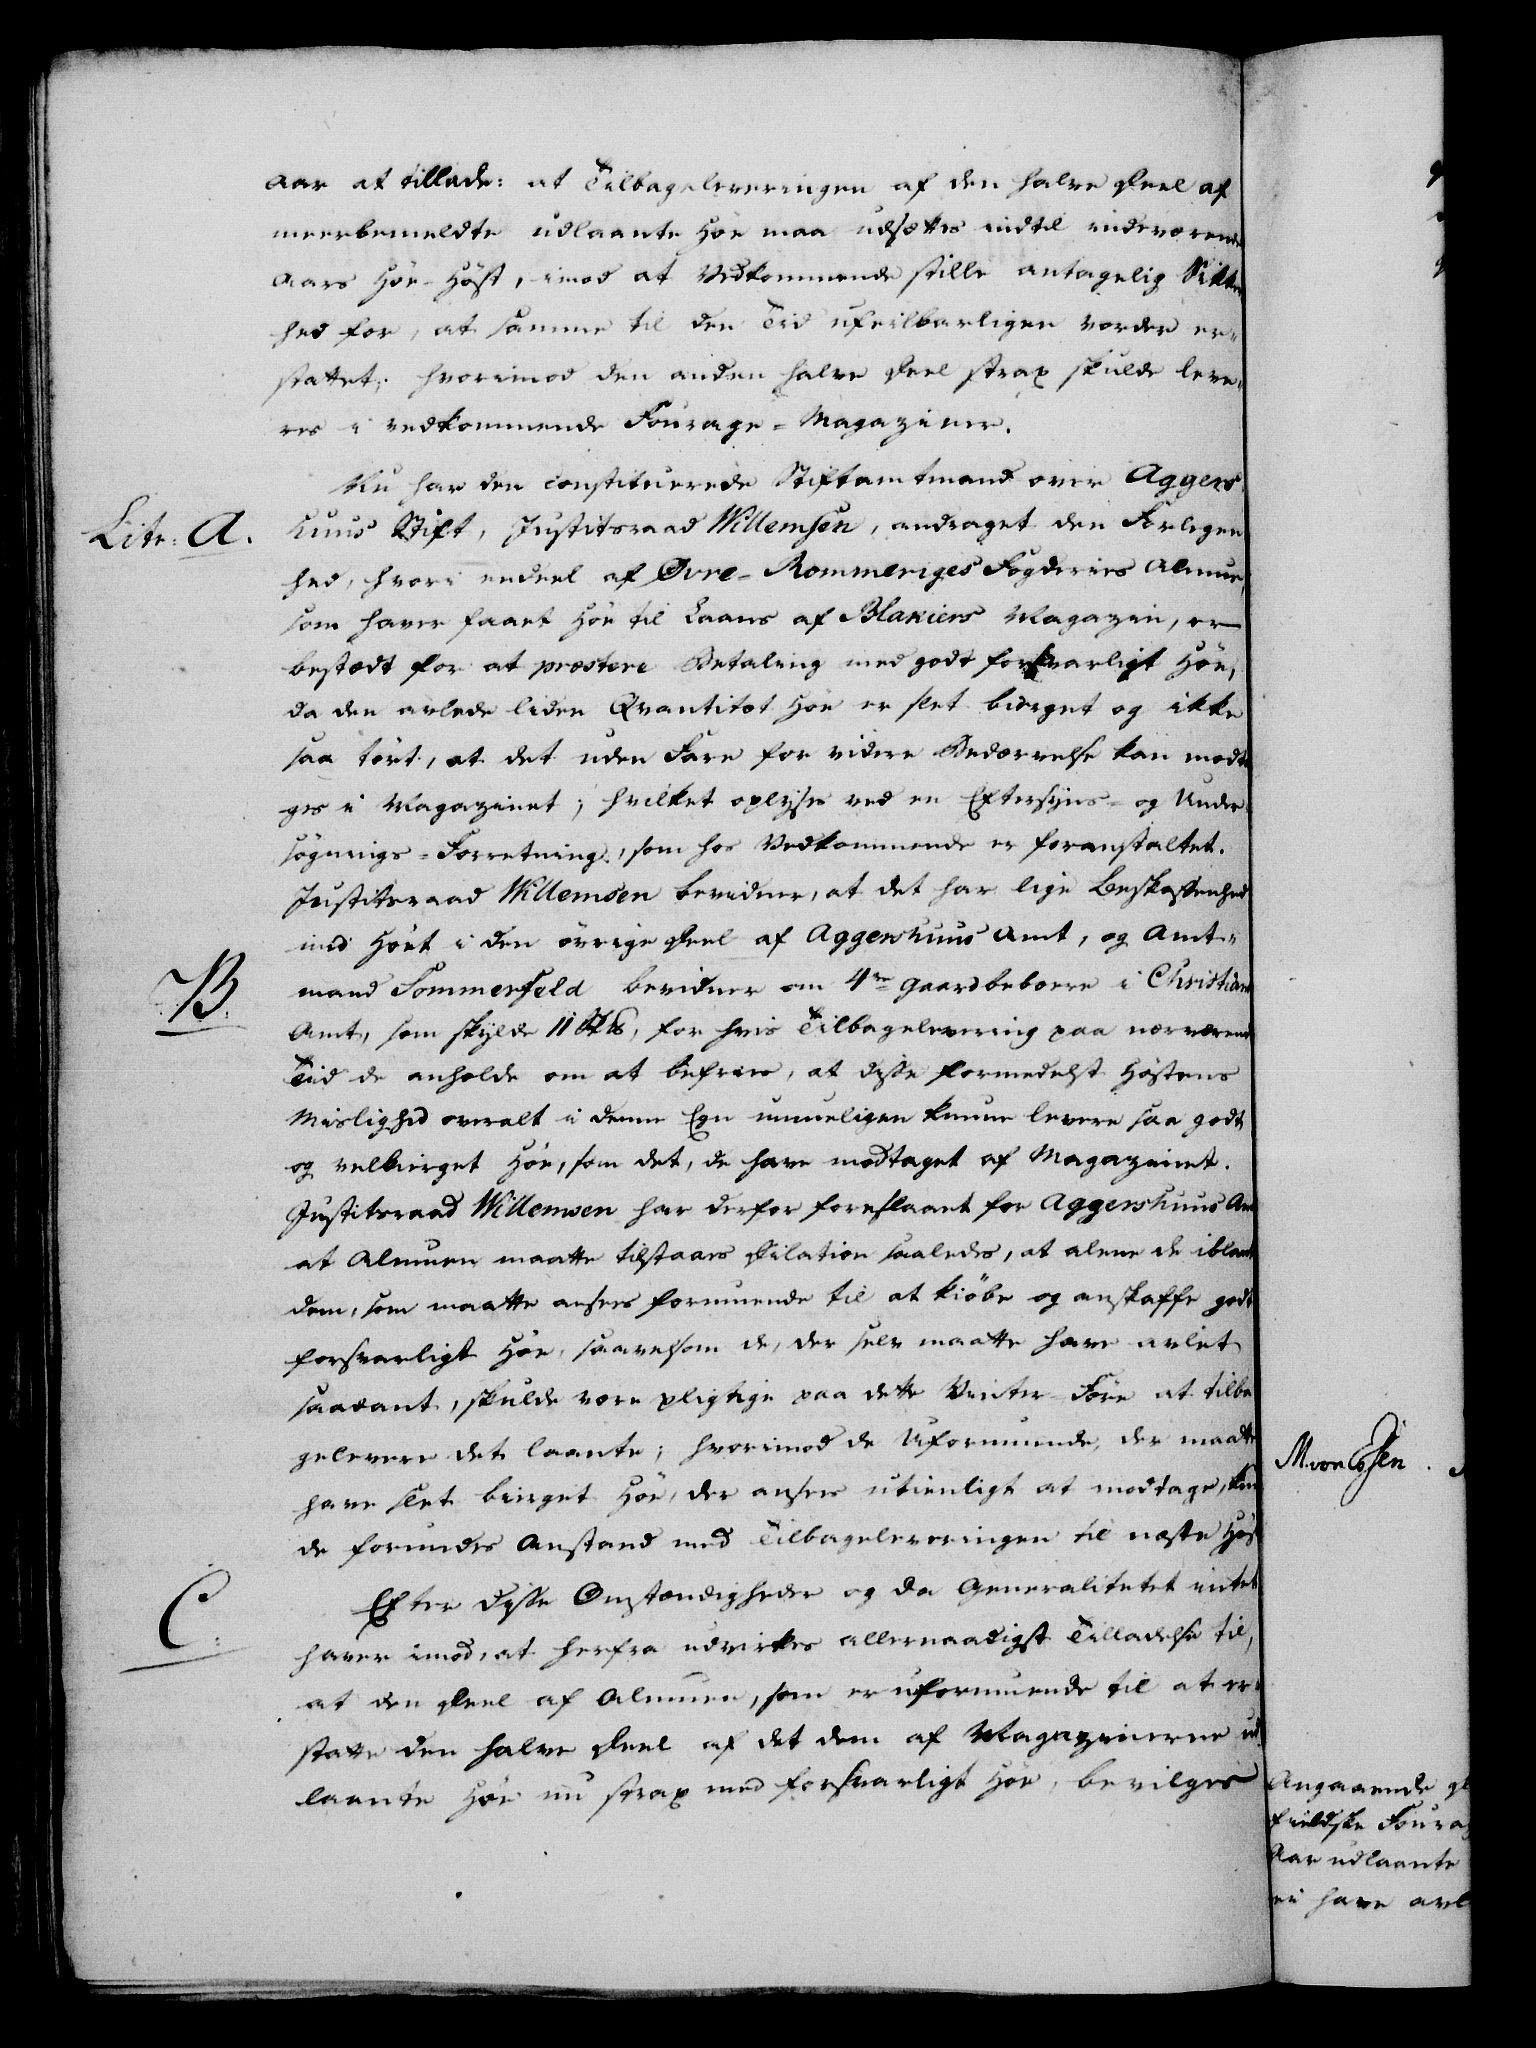 Aar at tillade: at Tilbageleveringen af den halve Deel af
meerbemeldte udlaante Høe maa udsættes indtil indeværende
Aars Høe-Høst, imod at Vedkommende stille antagelig Sikker
hed for, at samme til den Tid ufeilbarligen vorder er-
stattet; hvorimod den anden halve Deel strax skulde leve-
res i vedkommende Fourage-Magaziner.
Nu har den constituerede Stiftamtmand over Aggers
Litr: A.
huus Stift, Justitsraad Willemsen, andraget den Forlegen
hed, hvori endeel af Øvre-Rommeriges Fogderies Almue,
som haver faaet Høe til Laans af Blakiers Magazin, er
bestædt for at præstere Betaling med godt forsvarligt Høe,
da den avlede liden Qvantitet Høe er slet bierget og ikke
saa tørt, at det uden Fare for videre Bedærvelse kan modta
ges i Magazinet; hvilket oplyses ved en Eftersyns- og Under-
søgnings-Forretning, som hos Vedkommende er foranstaltet.
Justitsraad Willemsen bevidner, at det har lige Beskaffenhed
med Høet i den øvrige Deel af Aggershuus Amt, og Amt-
B.
mand Sommerfeld bevidner om 4re Gaardbeboere i Christians
Amt, som skylde 11 , for hvis Tilbagelevering paa nærværende
Tid de anholde om at befries, at disse formedelst Høstens
Mislighed overalt i denne Egn umueligen kunne levere saa godt
og velbierget Høe, som det, de have modtaget af Magazinet.
Justitsraad Willemsen har derfor foreslaaet for Aggershuus Amt
at Almuen maatte tilstaaes Dilation saaledes, at alene de iblant
dem, som maatte ansees formuende til at kiøbe og anskaffe godt
forsvarligt Høe, saavelsom de, der selv maatte have avlet
saadant, skulde være pligtige paa dette Vinter-Føre at tilba
gelevere det laante; hvorimod de Uformuende, der maatte
have slet bierget Høe, der ansees utienligt at modtage, kun
de forundes Anstand med Tilbageleveringen til næste Høst
C.
Efter disse Omstændigheder og da Generalitetet intet
haver imod, at herfra udvirkes allernaadigst Tilladelse til,
at den Deel af Almuen, som er uformuende til at er-
statte den halve Deel af det dem af Magazinerne ud
laante Høe nu strax med forsvarligt Høe, bevilges
M. von Essen
Angaaende
fieldske Fourag
Aar udlaante
ei have avl